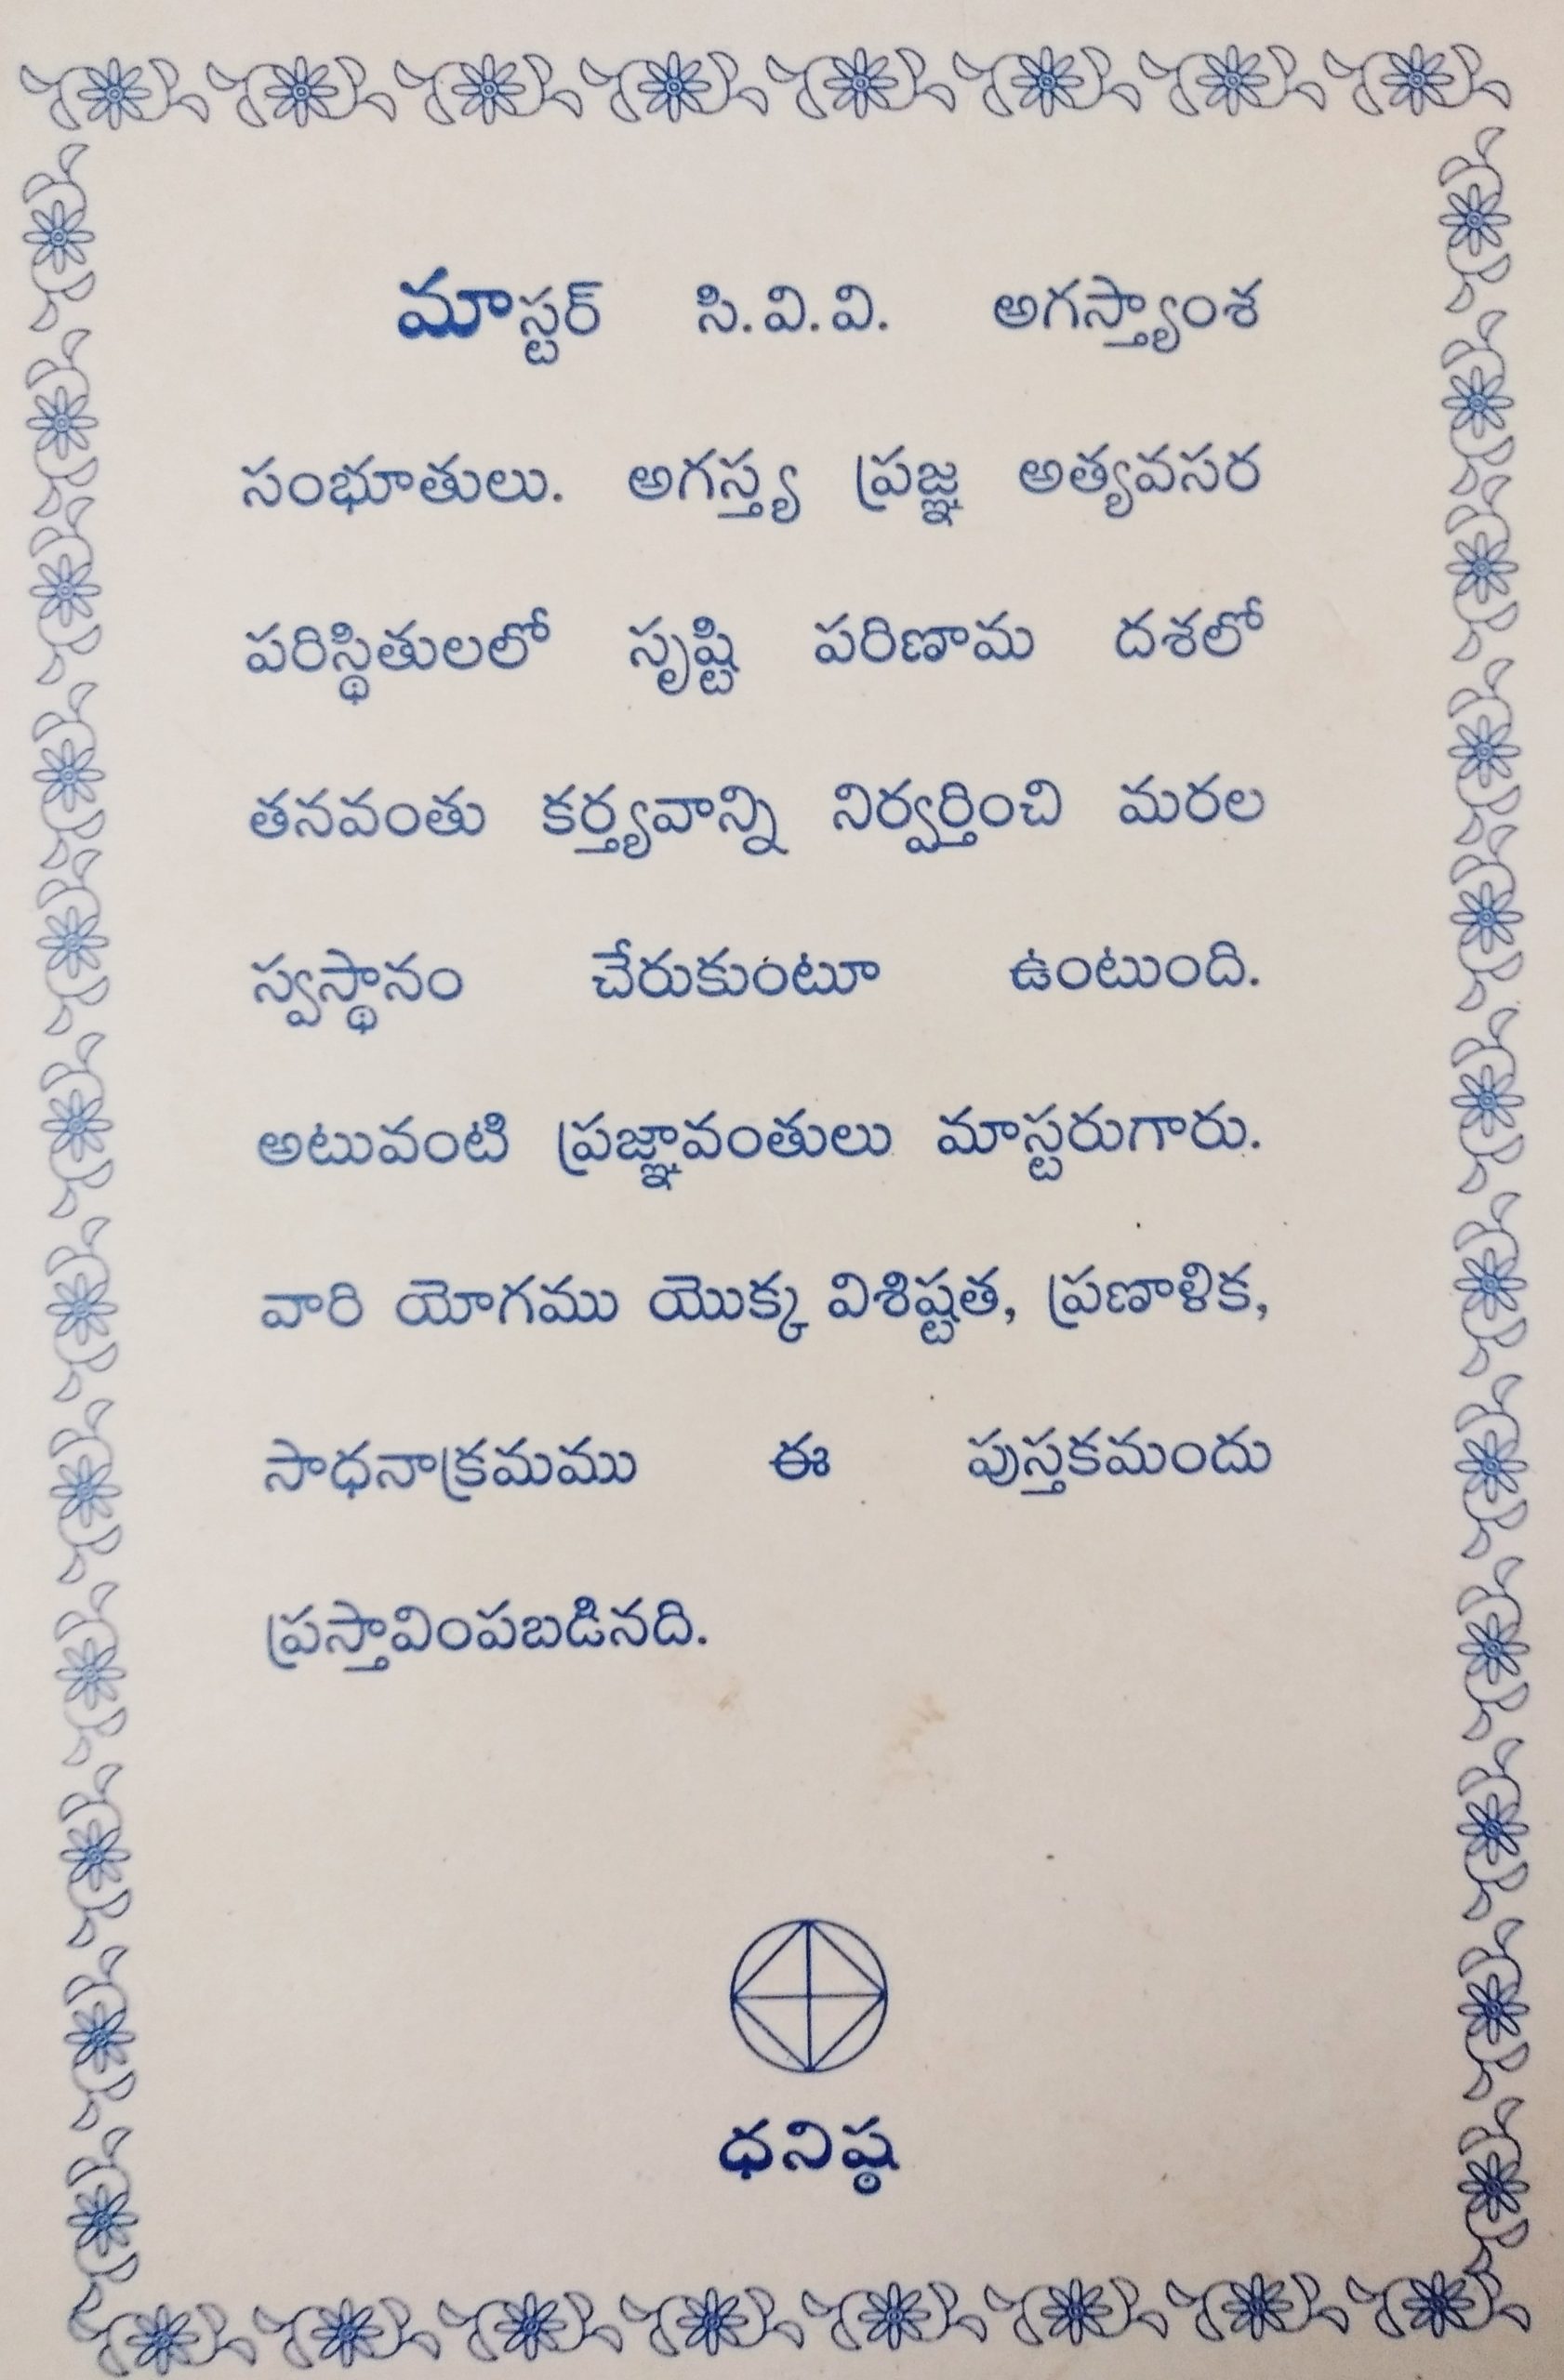 మాస్టర్ సి.వి.వి. అగస్త్యాంశ
సంభూతులు. అగస్త్య ప్రజ్ఞ అత్యవసర
పరిస్థితులలో సృష్టి పరిణామ దశలో
తనవంతు కర్త్యవాన్ని నిర్వర్తించి మరల
స్వస్థానం చేరుకుంటూ ఉంటుంది.
అటువంటి ప్రజ్ఞావంతులు మాస్టరుగారు.
వారి యోగము యొక్క విశిష్టత, ప్రణాళిక,
సాధనాక్రమము ఈ పుస్తకమందు
ప్రస్తావింపబడినది.
ధనిష్ఠ